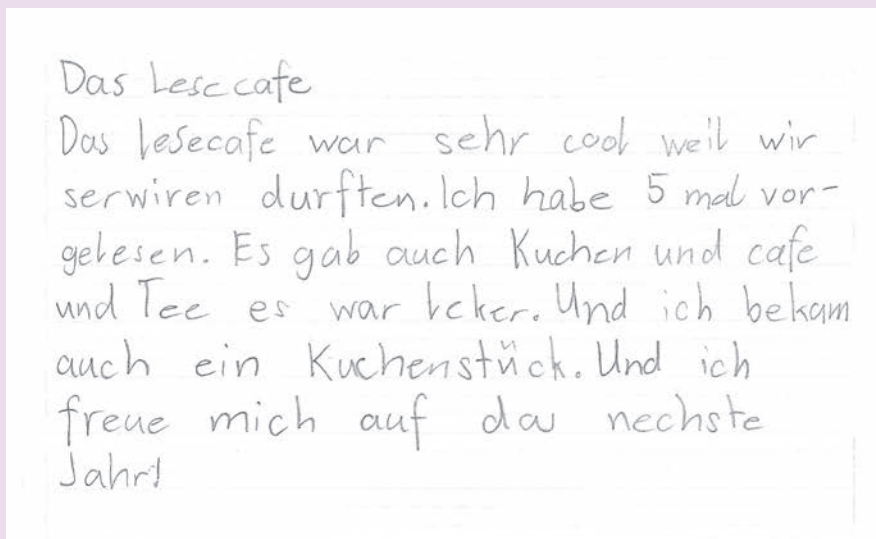 Das Lesecafe
Das lesecafe war sehr cool weil wir
serwiren durften. Ich habe 5 mal vor-
gelesen. Es gab auch Kuchen und cafe
und Tee es war leker. Und ich bekam
auch ein Kuchenstück. Und ich
freue mich auf das nechste
Jahr!